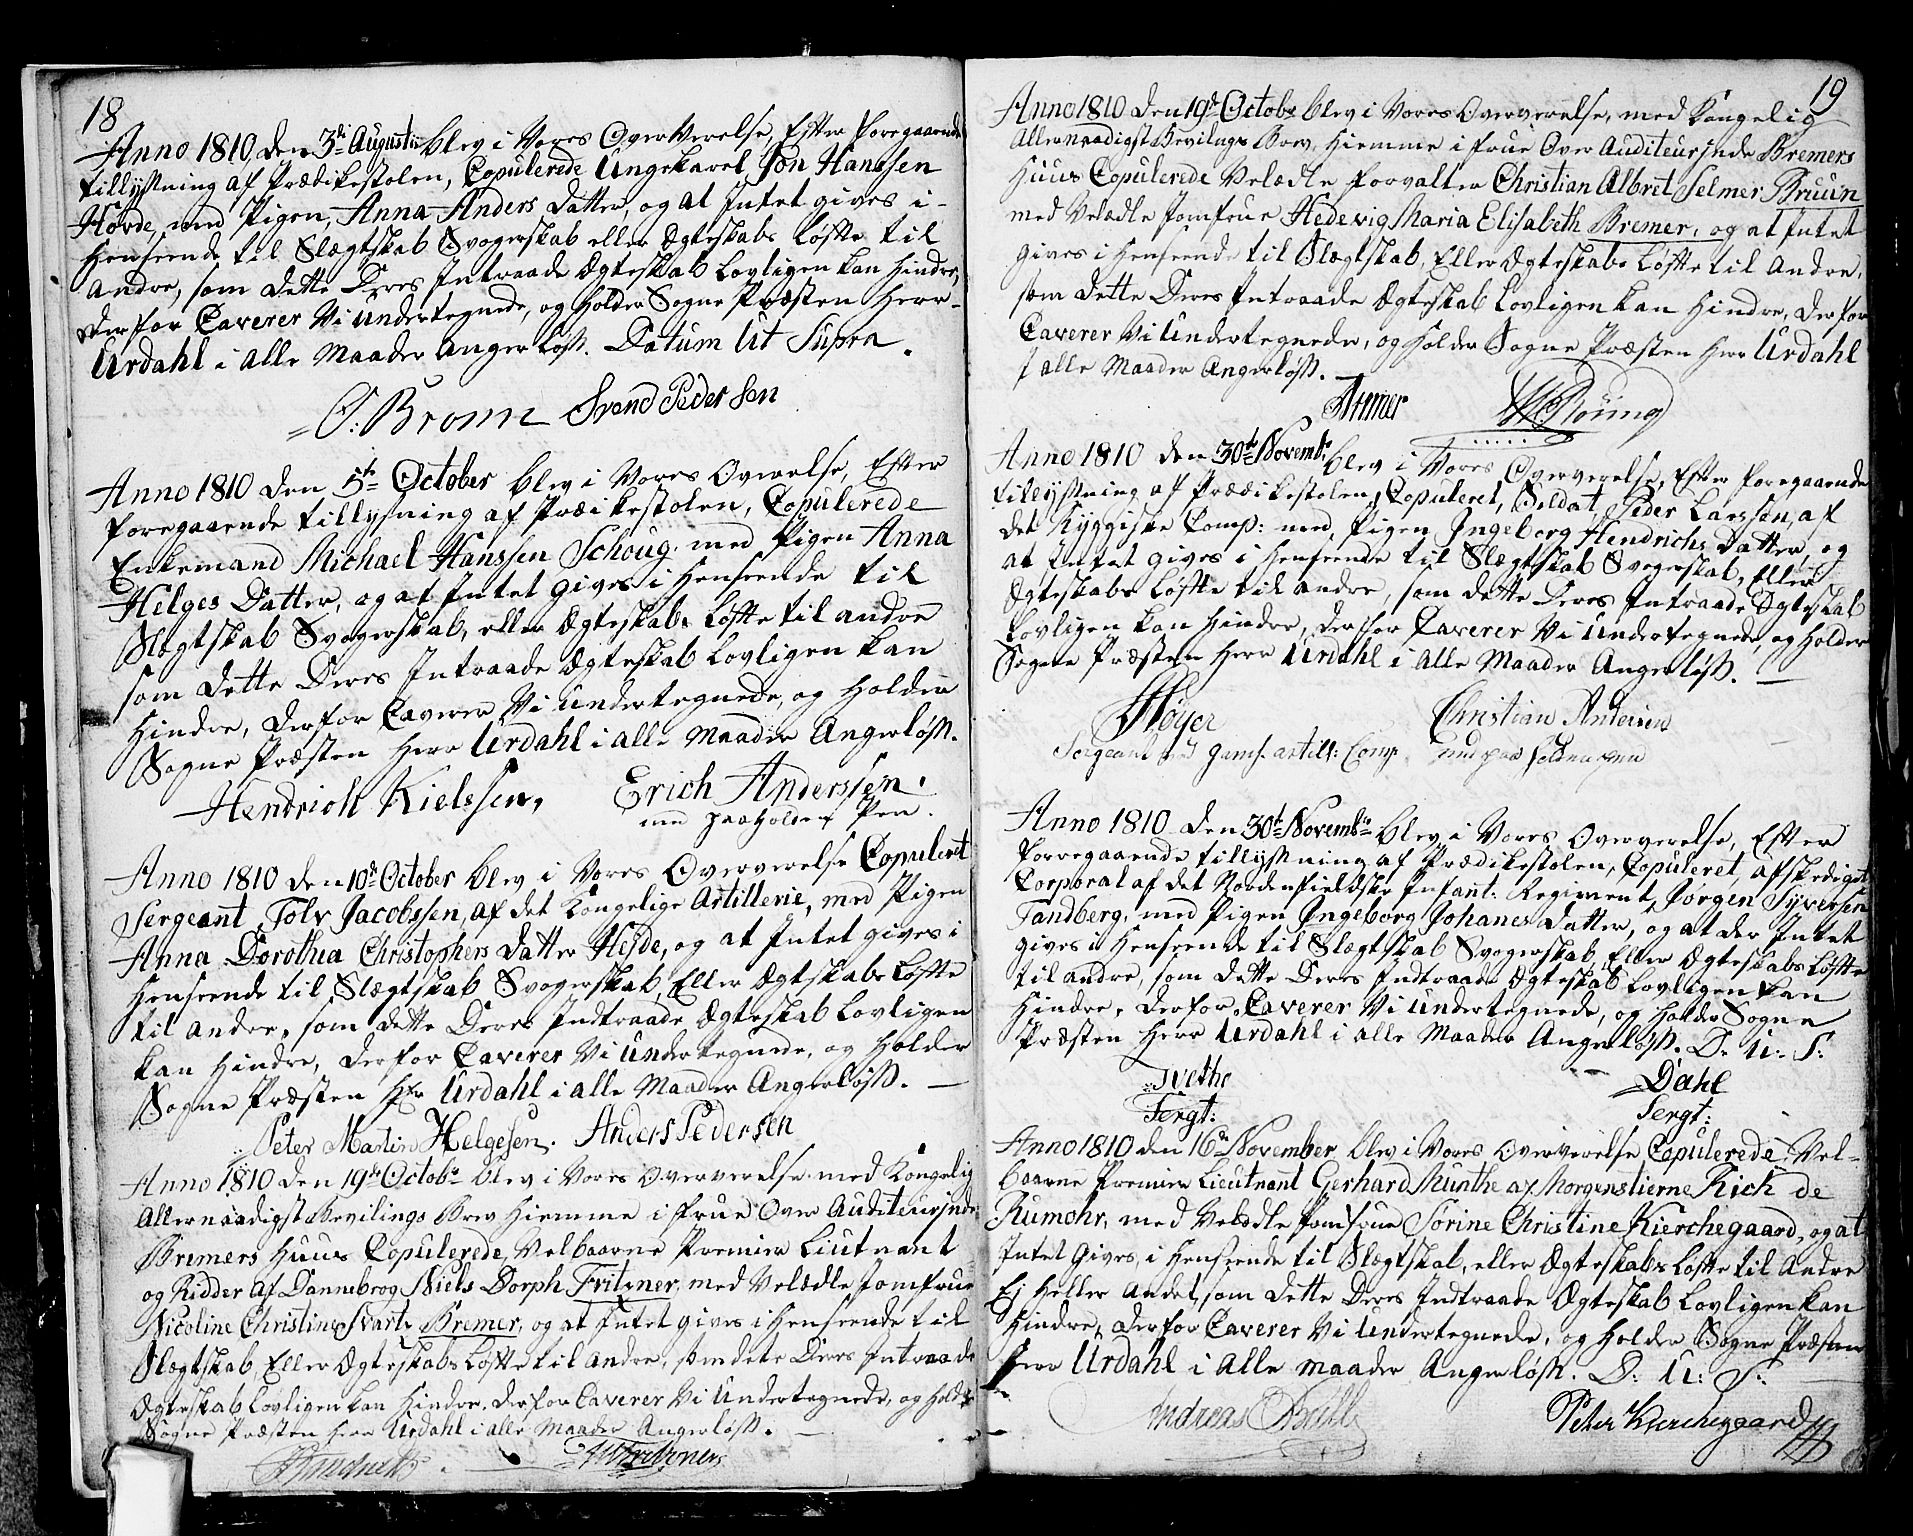 18
Anno 1810, den 3di Augustii blev i Vores Over Verelse, Efter foregaaende
tillysning af Prædikestolen, Copulerede Ungekarel Jon Hanssen
Hovde, med Pigen, Anna Anders Datter, og at Intet gives i
Henseende til Slægtskab Svogerskab eller Ægteskabs Løfte til
andre, som dette Deres Intraade Ægteskab Lovligen kan Hindre,
derfor Caverer Vi Undertegnede, og Holder Sogne Præsten Herr
Urdahl i alle Maader angerløst. Datum Ut Supra.
Svend Pedersen
Anno 1810 den 5te October blev i Vores Oververelse, Efter
foregaaende tillysning af Præikestolen, Copulerede
Enkemand Michael Hanssen Schoug, med Pigen Anna
Helges Datter, og at Intet gives i Henseende til
Slægtskab Svogerskab, eller Ægteskabs Løfte til andre
som dette Deres Intraade Ægteskab Lovligen kan
Hindre, derfor Caverer Vi Undertegnede, og Holder
Sogne Præsten Herr Urdahl i alle Maader Angerløst.
Hendrich Kielssen, Erich Anderssen.
med paaholden Pen.
Anno 1810 den 10de October blev i Vores Oververelse Copuleret
Sergeant Tolv Jacobssen, af det Kongelige Artillerie, med Pigen
Anna Dorothea Christophers Datter Hejde, og at Intet gives i
Henseende til Slægtskab Svogerskab, Eller Ægtskabs Løfte
til andre, som dette Deres Indtraade Ægteskab Lovligen
kan Hindre, derfor Caverer Vi Undertegnede, og Holder
Sogne Præsten Hr Urdahl i alle Maader Angerløst.
Peter Martin Helgesen. Anders Pedersen
Anno 1810 den 19de Octobr blev i Vores Oververelse med Kongelig
Allernaadigst Bevilings Brev Hiemme i Frue Over Auditeurinde
Bremers Huus Copulerede, Velbaarne Premier Liutnant
og Ridder af Dannebrog Niels Dorph Fritzner, med Velædle Jomfrue
Nicoline Christine Svarts Bremer, og at Intet gives i Henseende til
Slægtskab, Eller Ægteskabs Løfte til andre, som dete Deres Intraade
Ægteskab Lovligen kan Hindre, derfor Caverer Vi Undertegnede, og Holder
Sogne Præsten Herr Urdahl i alle Maader Angerløst.
19
Anno 1810 den 19de Octobr blev i Vores Oververelse, med Kongelig
Allernaadigst Bevilings Brev, Hiemme i Frue Over Auditeurinde Bremers
Huus Copulerede Velædle Forvalter Christian Albret Selmer Bruun
med Velædle Jomfrue Hedevig Maria Elisabeth Bremer, og at Intet
gives i Henseende til Slægtskab, Eller Ægteskabs Løfte til Andre,
som dette Deres Intraade Ægteskab Lovligen kan Hindre, derfor
Caverer Vi Undertegnede, og Holder Sogne Præsten Herr Urdahl
i alle Maader Angerløst.
Anno 1810 den 30te Novembr blev i Vores Oververelse, Efter foregaaende
tillysning af Prædikestolen, Copuleret, Soldat, Peder Larssen, af
det Hyggiske Comp: med, Pigen Ingeborg Hendrichs Datter, og
at Intet gives i Henseende til Slægtskab Svogerskab, Eller
Ægteskabs Løfte til andre, som dette Deres Intraade Ægteskab
Lovligen kan Hindre, derfor Caverer Vi Undertegnede, og Holder
Sogne Præsten Herr Urdahl i alle Maader Angerløst.
Høyer Christian Andersen
Sergeant artill: Comp. med paa holden pen
Anno 1810 den 30te Novembr blev i Vores Oververelse, Efter
forregaaende tillysning af Prædikestolen, Copuleret, afskediget
Corporal af det Nordenfieldske Infant: Regiment, Jørgen Syversen
Tandberg, med Pigen Ingeborg Johanes Datter, og at der Intet
gives i Henseende til Slægtskab Svogerskab, Eller Ægteskabs Løfte
til andre, som dette Deres Indtraade Ægteskab Lovligen kan
Hindre, derfor Caverer Vi Undertegnede, og Holder Sogne
Præsten Herr Urdahl i alle Maader Angerløst. D: U: S:
Tvethe Dahl
Sergt: Sergt:
Anno 1810 den 16de November, blev i Vores Oververelse Copulerede Vel-
baarne Premier Lieutnant Gerhard Munthe af Morgenstierne Rich de
Rumohr, med Velædle Jomfrue Sørine Christine Kierchegaard, og at
Intet Gives, i Henseende til Slægtskab, eller Ægteskabs Løfte til Andre
Ej Heller Andet, som dette Deres Indtraade Ægteskab Lovligen kan
Hindre, derfor Caverer Vi Undertegnede, og Holder Sogne Præsten
Herr Urdahl i Alle Maader Angerløst. D: U: S:
Andreas Bull Peter Kierchegaard